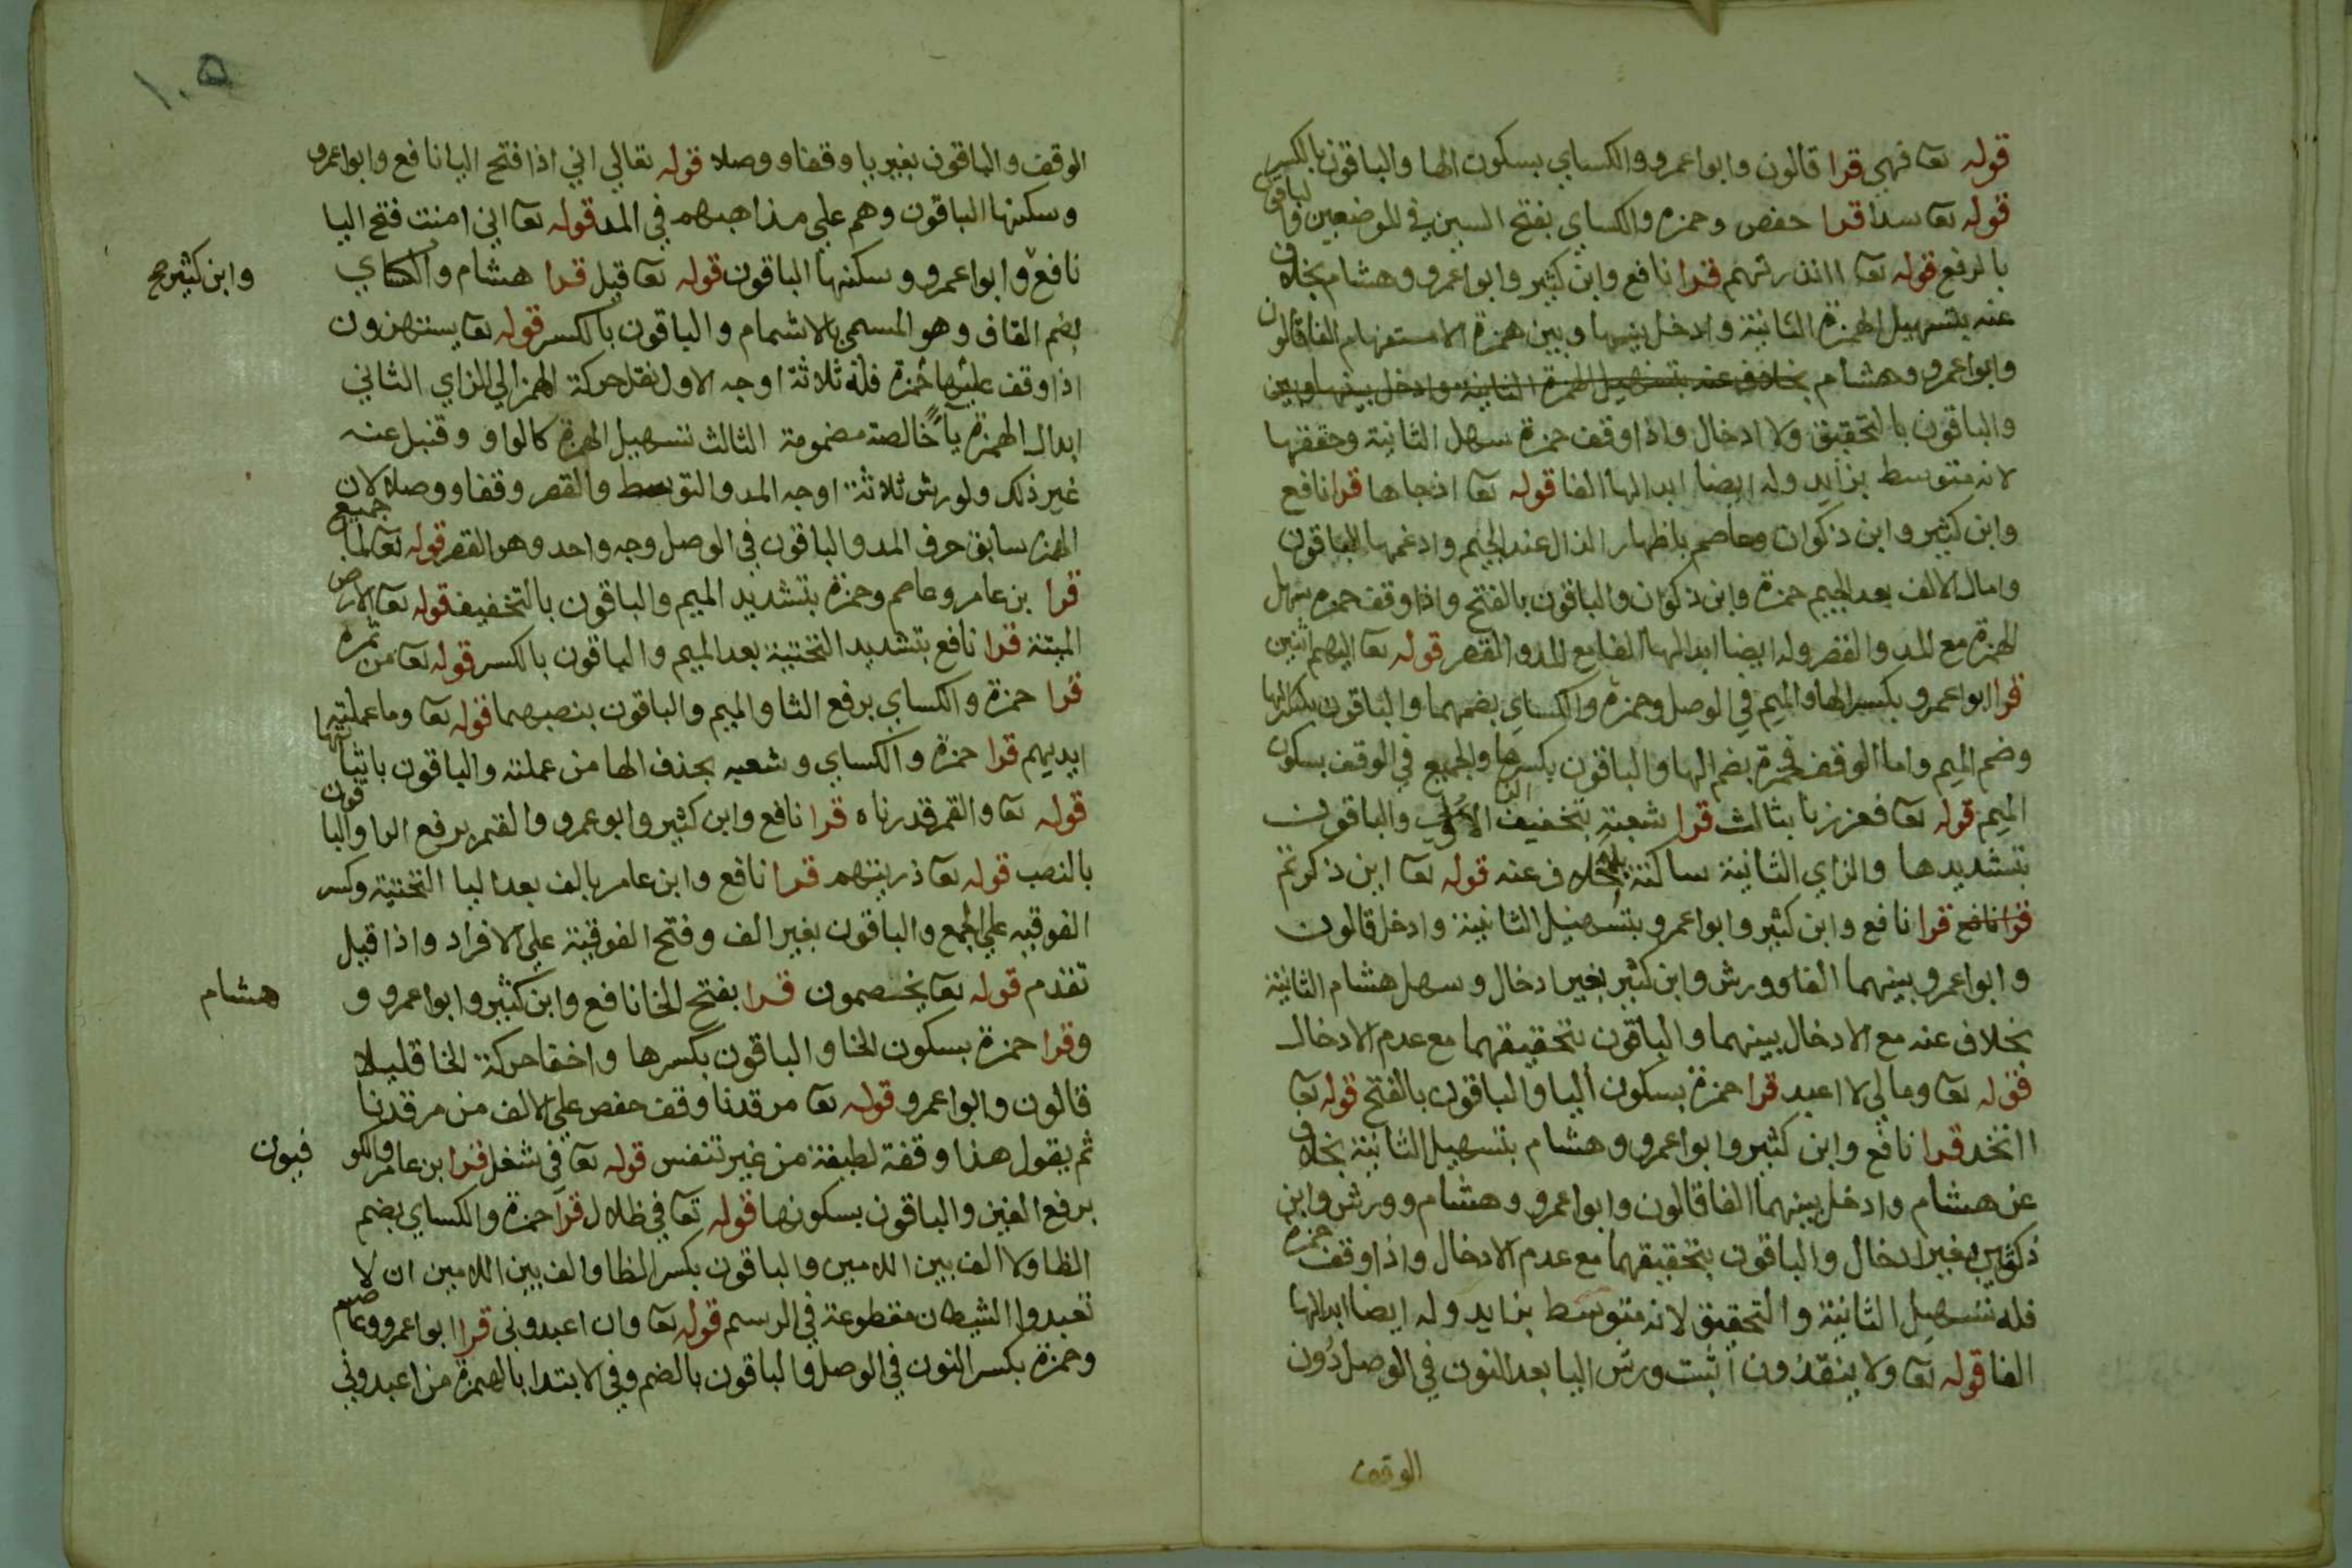 قوله تعا فهي قرا قالون وابوا عمرو والكساي بسكون الها والباقون بالكسر
قوله تعا سدا قرا حفص وحمزه والكساي بفتح السين في الموضعين والباقون
بالرفع قوله تعا اانذرتهم قرا نافع وابن كثير وابوا عمرو وهشام بخلاف
عنه بتسهيل الهمزة الثانية وادخل بينها وبين همزة الاستفهام الفا قالون
وابوا عمرو وهشام بخلاف عنه بتسهيل الهمزة الثانية وادخل بينها وبين
والباقون بالتحقيق ولا ادخال واذا وقف حمزة سهل الثانية وحققها
لانه متوسط بزايد وله ايضا ابدالها الفا قوله تعا اذ جاها قرا نافع
وابن كثير وابن ذكوان وعاصم باظهار الذال عند الجيم وادغمها الباقون
وامال الالف بعد الجيم حمزة وابن ذكوان والباقون بالفتح واذا وقف حمزه سهل
الهمزة مع المد والقصر وله ايضا ابدالها الفا مع المد والقصر قوله تعا اليهم اثنين
قرا ابوا عمرو بكسر الها والميم في الوصل وحمزة والكساي بضمهما والباقون بكسر الها
وضم الميم واما الوقف فحمزة بضم الها والباقون بكسرها والجميع في الوقف بسكون
الميم قوله تعا فعززنا بثالث قرا شعبة بتخفيف الزاي الاولي والباقون
بتشديدها والزاي الثانية ساكنة بلا خلاف عنه قوله تعا اين ذكرتم
قرا نافع قرا نافع وابن كثير وابوا عمرو بتسهيل الثانية وادخل قالون
وابوا عمرو بينهما الفا وورش وابن كثير بغير ادخال وسهل هشام الثانية
بخلاف عنه مع الادخال بينهما والباقون بتحقيقهما مع عدم الادخال
قوله تعا وما لي لا اعبد قرا حمزة بسكون اليا والباقون بالفتح قوله تعا
ااتخد قرا نافع وابن كثير وابوا عمرو وهشام بتسهيل الثانية بخلاف
عن هشام وادخل بينهما الفا قالون وابوا عمرو وهشام وورش وابن
كثير بغير ادخال والباقون بتحقيقهما مع عدم الادخال واذا وقف حمزة
فله تسهيل الثانية والتحقيق لانه متوسط بزايد وله ايضا ابدالها
الفا قوله تعا ولا ينقذون اثبت ورش اليا بعد النون في الوصل دون
الوقف
١٠٥
الوقف والباقون بغير يا وقفا ووصلا قوله تعالي اني اذا فتح اليا نافع وابوا عمرو
وسكنها الباقون وهم علي مذاهبهم في المد قوله تعا اني امنت فتح اليا
نافع وابوا عمرو وسكنها الباقون قوله تعا قيل قرا هشام والكساي
وابن كثير صح
بضم القاف وهو المسمي بالاشمام والباقون بالكسر قوله تعا يستهزون
اذا وقف عليها حمزة فله ثلاثة اوجه الاول نقل حركة الهمز الي الزاي الثاني
ابدال الهمزة يآ خالصة مضمومة الثالث تسهيل الهمزة كالواو وقنبل عنه
غير ذلك ولورش ثلاثة اوجه المد والتوسط والقصر وقفا ووصلا لان
الهمز سابق حرف المد والباقون في الوصل وجه واحد وهو القصر قوله تعا لما جميع
قرا بن عامر وعاصم وحمزة بتشديد الميم والباقون بالتخفيف قوله تعا الارض
الميتة قرا نافع بتشديد التحتية بعد الميم والباقون بالكسر قوله تعا من ثمره
قرا حمزة والكساي برفع الثا والميم والباقون بنصبهما قوله تعا وما عملته
ايديهم قرا حمزة والكساي وشعبه بحذف الها من عملته والباقون باثباتها
قوله تعا والقمر قدرناه قرا نافع وابن كثير وابو عمرو والقمر برفع الرا والباقون
بالنصب قوله تعا ذريتهم قرا نافع وابن عامر بالف بعد اليا التحتية وكسر
الفوقيه علي الجمع والباقون بغير الف وفتح الفوقية علي الافراد واذا قيل
تقدم قوله تعا يخصمون قرا بفتح الخا نافع وابن كثير وابوا عمرو و
هشام
وقرا حمزة بسكون الخا والباقون بكسرها واخفا حركة الخا قليلا
قالون وابوا عمرو قوله تعا مرقدنا وقف حفص علي الالف من مرقدنا
ثم يقول هذا وقفة لطيفة من غير تنفس قوله تعا في شغل قرا بن عامر والكو
فيون
برفع الغين والباقون بسكونها قوله تعا في ظلال قرا حمزة والكساي بضم
الظا ولا الف بين اللامين والباقون بكسر الظا والف بين اللامين ان لا
تعبدوا الشيطان مقطوعة في الرسم قوله تعا وان اعبدوني قرا ابوا عمرو وعاصم
وحمزة بكسر النون في الوصل والباقون بالضم وفي الابتدا بالهمزة من اعبدوني